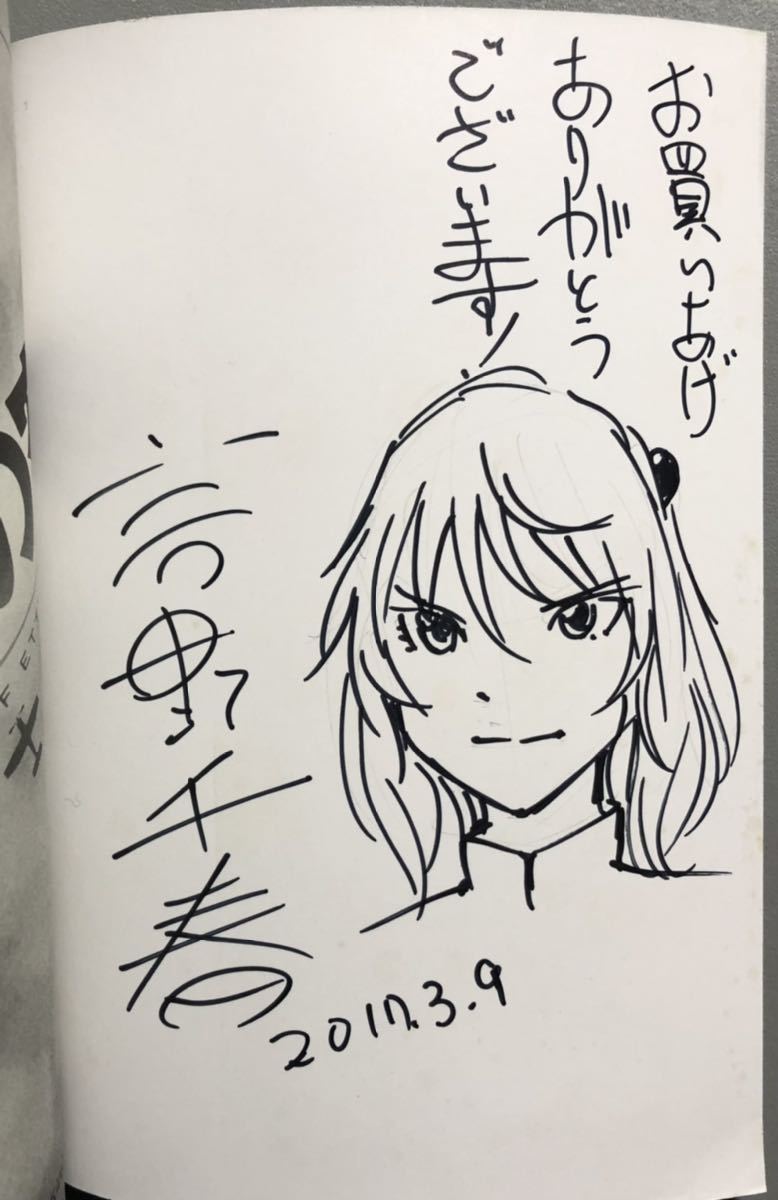 お買いあげ
ありがとう
ございます!
高野千春
2017.3.9